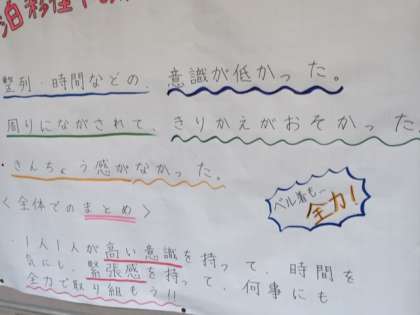 整列・時間などの、意識が低かった。
周りにながされて、きりかえがおそかった
きんちょう感がなかった。
<全体でのまとめ>
ベル着も…
全力!
・1人1人が高い意識を持って、時間を
気にし、緊張感を持って、何事にも
全力で取り組もう!!